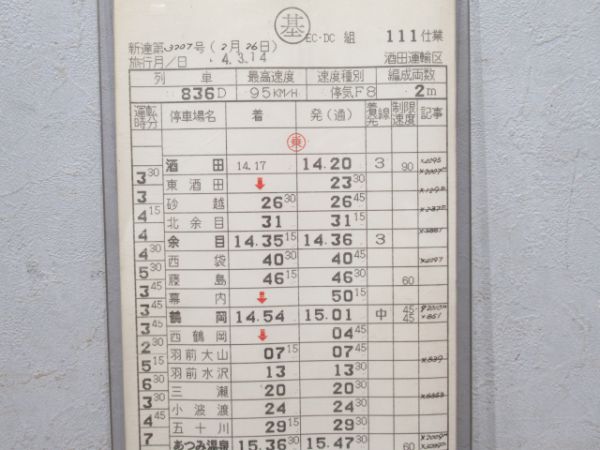 基 EC-DC 組 111仕業
新達第3207号(2月26日)
施行月/日 4.3.14 酒田運輸区
列 車 最高速度 速度種別 編成両数
836D 95KM/H 停気F8 2m
運転時分 停車場名 着 発(通) 着発線 制限速度 記事
乗
酒 田 14.17 14.20 3 90
3 30
東酒田 ↓ 23 30
3
砂 越 26 30 26 45
4 15
北余目 31 31 15
4
余 目 14.35 15 14.36 3
4 30
西 袋 40 30 40 45
5 30
藤 島 46 15 46 30 60
3 45
幕 内 ↓ 50 15
3 45
鶴 岡 14.54 15.01 中 45 45
3 45
西鶴岡 ↓ 04 45
2 30
羽前大山 07 15 07 45
5 15
羽前水沢 13 13 30
6 30
三 瀬 20 20 30
3 30
小波渡 24 24 30
4 45
五十川 29 15 29 30
7
あつみ温泉 15.36 30 15.47 30 60